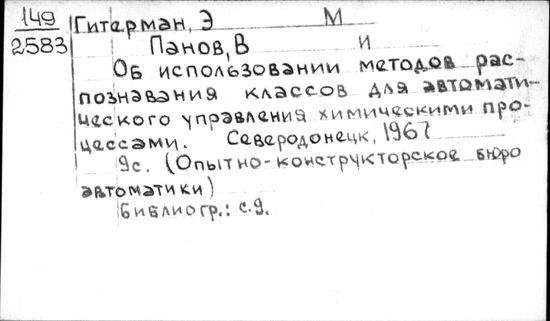 149
2583
Гитерман, Э М
Панов, В И
Об использовании методов рас-
познавания классов для автомати-
ческого управления химическими про-
цессами. Северодонецк, 1967
9с. (Опытно-конструкторское бюро
автоматики)
Библиогр.: с.9.